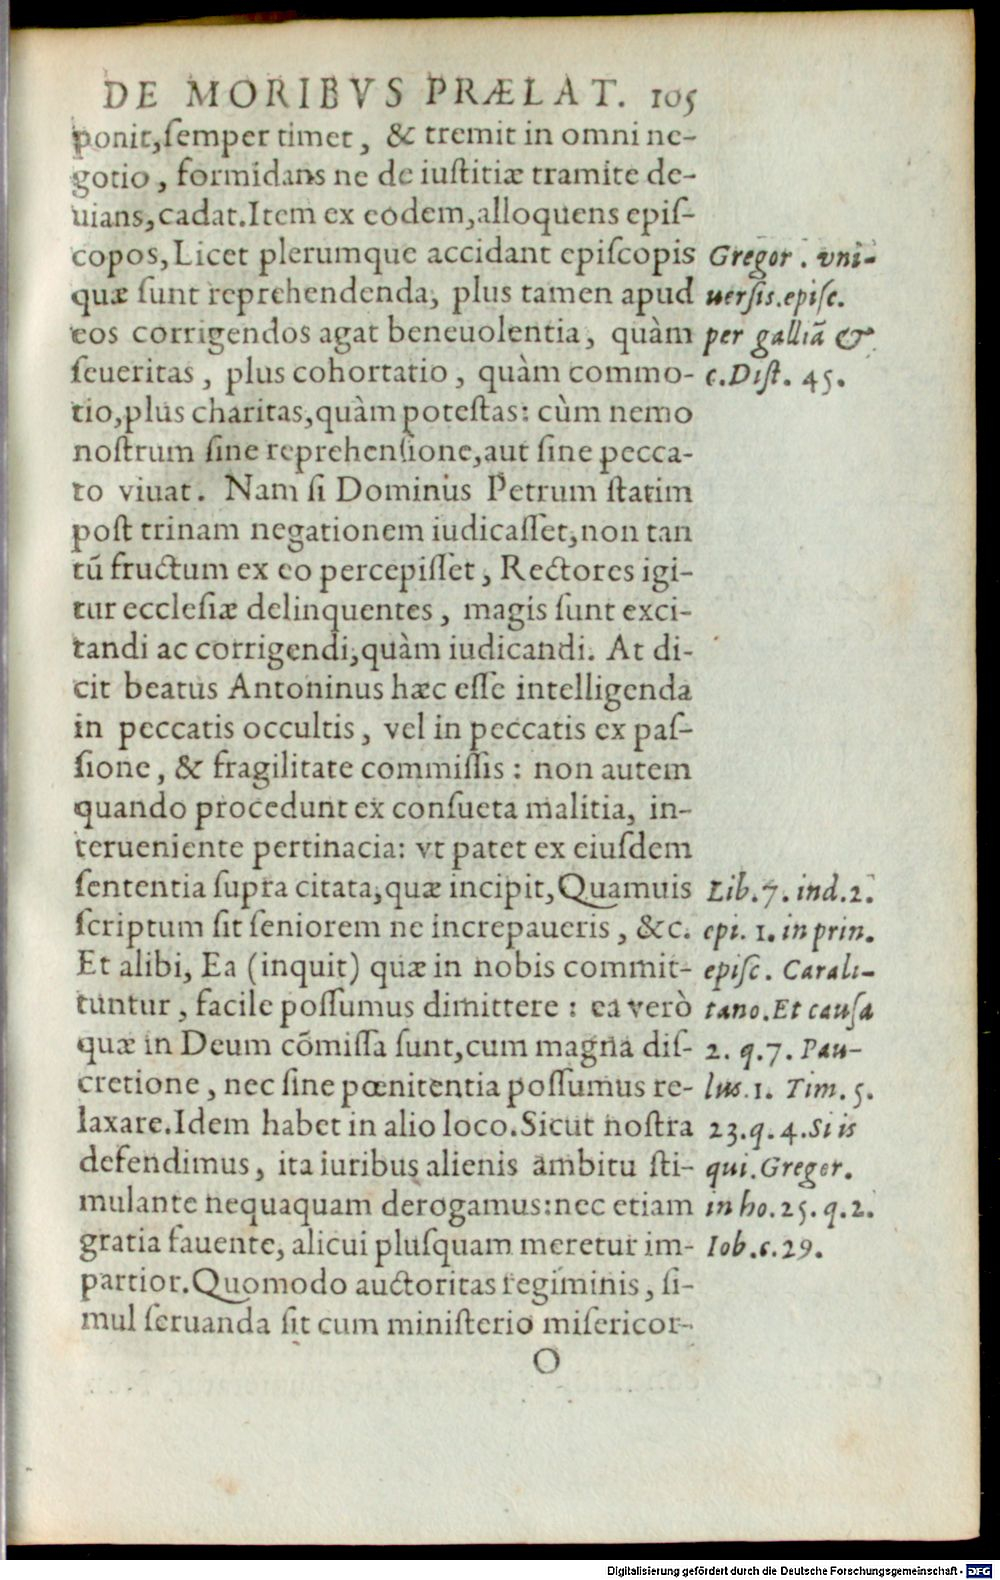 DE MORIBVS PRÆLAT. 105
ponit,ſemper timet, & tremit in omni ne-
gotio, formidans ne de iuſtitiæ tramite de-
uians,cadat.Item ex eodem,alloquens epiſ-
copos,Licet plerumque accidant epiſcopis
quæ ſunt reprehendenda, plus tamen apud
eos corrigendos agat beneuolentia, quàm
ſeueritas, plus cohortatio, quàm commo-
tio,plus charitas,quàm poteſtas: cùm nemo
noſtrum ſine reprehenſione,aut ſine pecca-
to viuat. Nam ſi Dominus Petrum ſtatim
poſt trinam negationem iudicaſſet,non tan
tū fructum ex eo percepiſſet, Rectores igi-
tur eccleſiæ delinquentes, magis ſunt exci-
tandi ac corrigendi,quàm iudicandi. At di-
cit beatus Antoninus hæc eſſe intelligenda
in peccatis occultis, vel in peccatis ex paſ-
ſione, & fragilitate commiſſis: non autem
quando procedunt ex conſueta malitia, in-
terueniente pertinacia: vt patet ex eiuſdem
ſententia ſupra citata,quæ incipit,Quamuis
ſcriptum ſit ſeniorem ne increpaueris, &c.
Et alibi, Ea (inquit) quæ in nobis commit-
tuntur, facile poſſumus dimittere: ea verò
quæ in Deum cōmiſſa ſunt,cum magna diſ-
cretione, nec ſine pœnitentia poſſumus re-
laxare.Idem habet in alio loco.Sicut noſtra
defendimus, ita iuribus alienis ambitu ſti-
mulante nequaquam derogamus:nec etiam
gratia fauente, alicui pluſquam meretur im-
partior.Quomodo auctoritas regiminis, ſi-
mul ſeruanda ſit cum miniſterio miſericor-
O
Gregor. vni-
uerſis.epiſc.
per galliā &
c.Diſt. 45.
Lib.7. ind.2.
epi. 1. in prin.
epiſc. Carali-
tano.Et cauſa
2. q.7. Pau-
lus.1. Tim. 5.
23.q.4.Si is
qui.Greger.
in ho.25.q.2.
Iob.c.29.
Digitalisierung gefördert durch die Deutsche Forschungsgemeinschaft - DFG